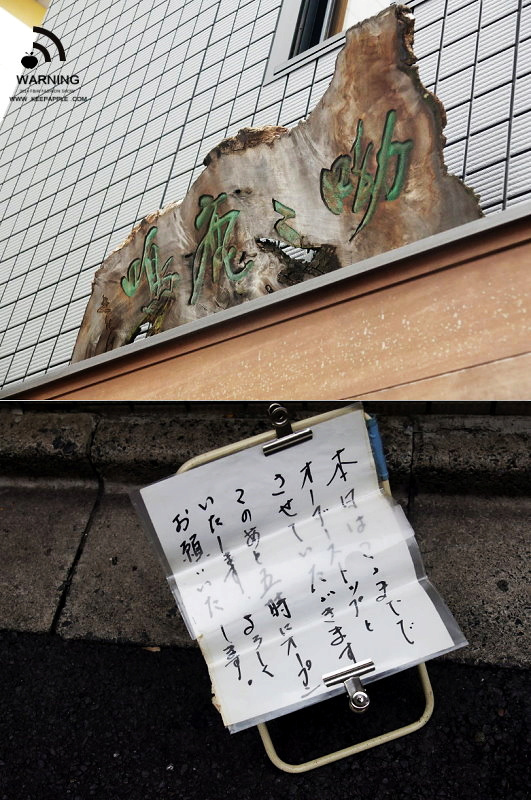 WARNING
WWW. KEEPAPPLE .COM
本日はここまでで
オーダーストップと
させていただきます
このあと五時にオープン
いたします。よろしく
お願いいたします。